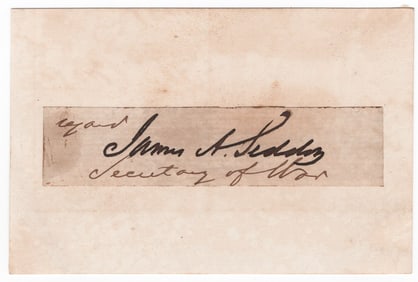 regard
James A. Seddon
Secretary of War